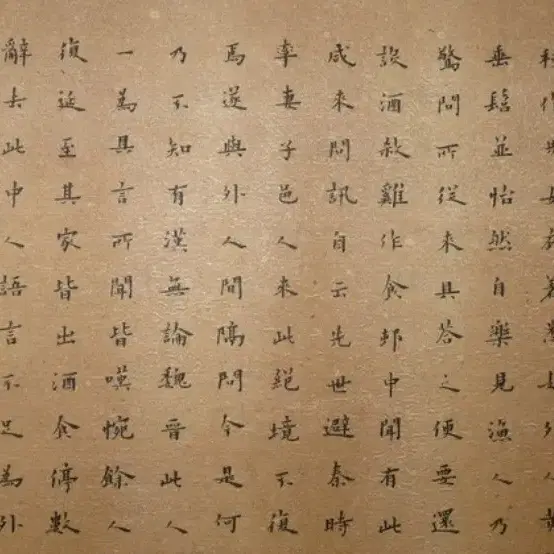 種作男女衣著悉如外人黃
垂髫並怡然自樂見漁人乃
驚問所從來具答之便要還
設酒殺雞作食邨中聞有此
咸來問訊自云先世避秦時
率妻子邑人來此絕境不復
焉遂與外人間隔問今是何
乃不知有漢無論魏晉此人
一為具言所聞皆嘆惋餘人
復延至其家皆出酒食停數
辭去此中人語言不足為外